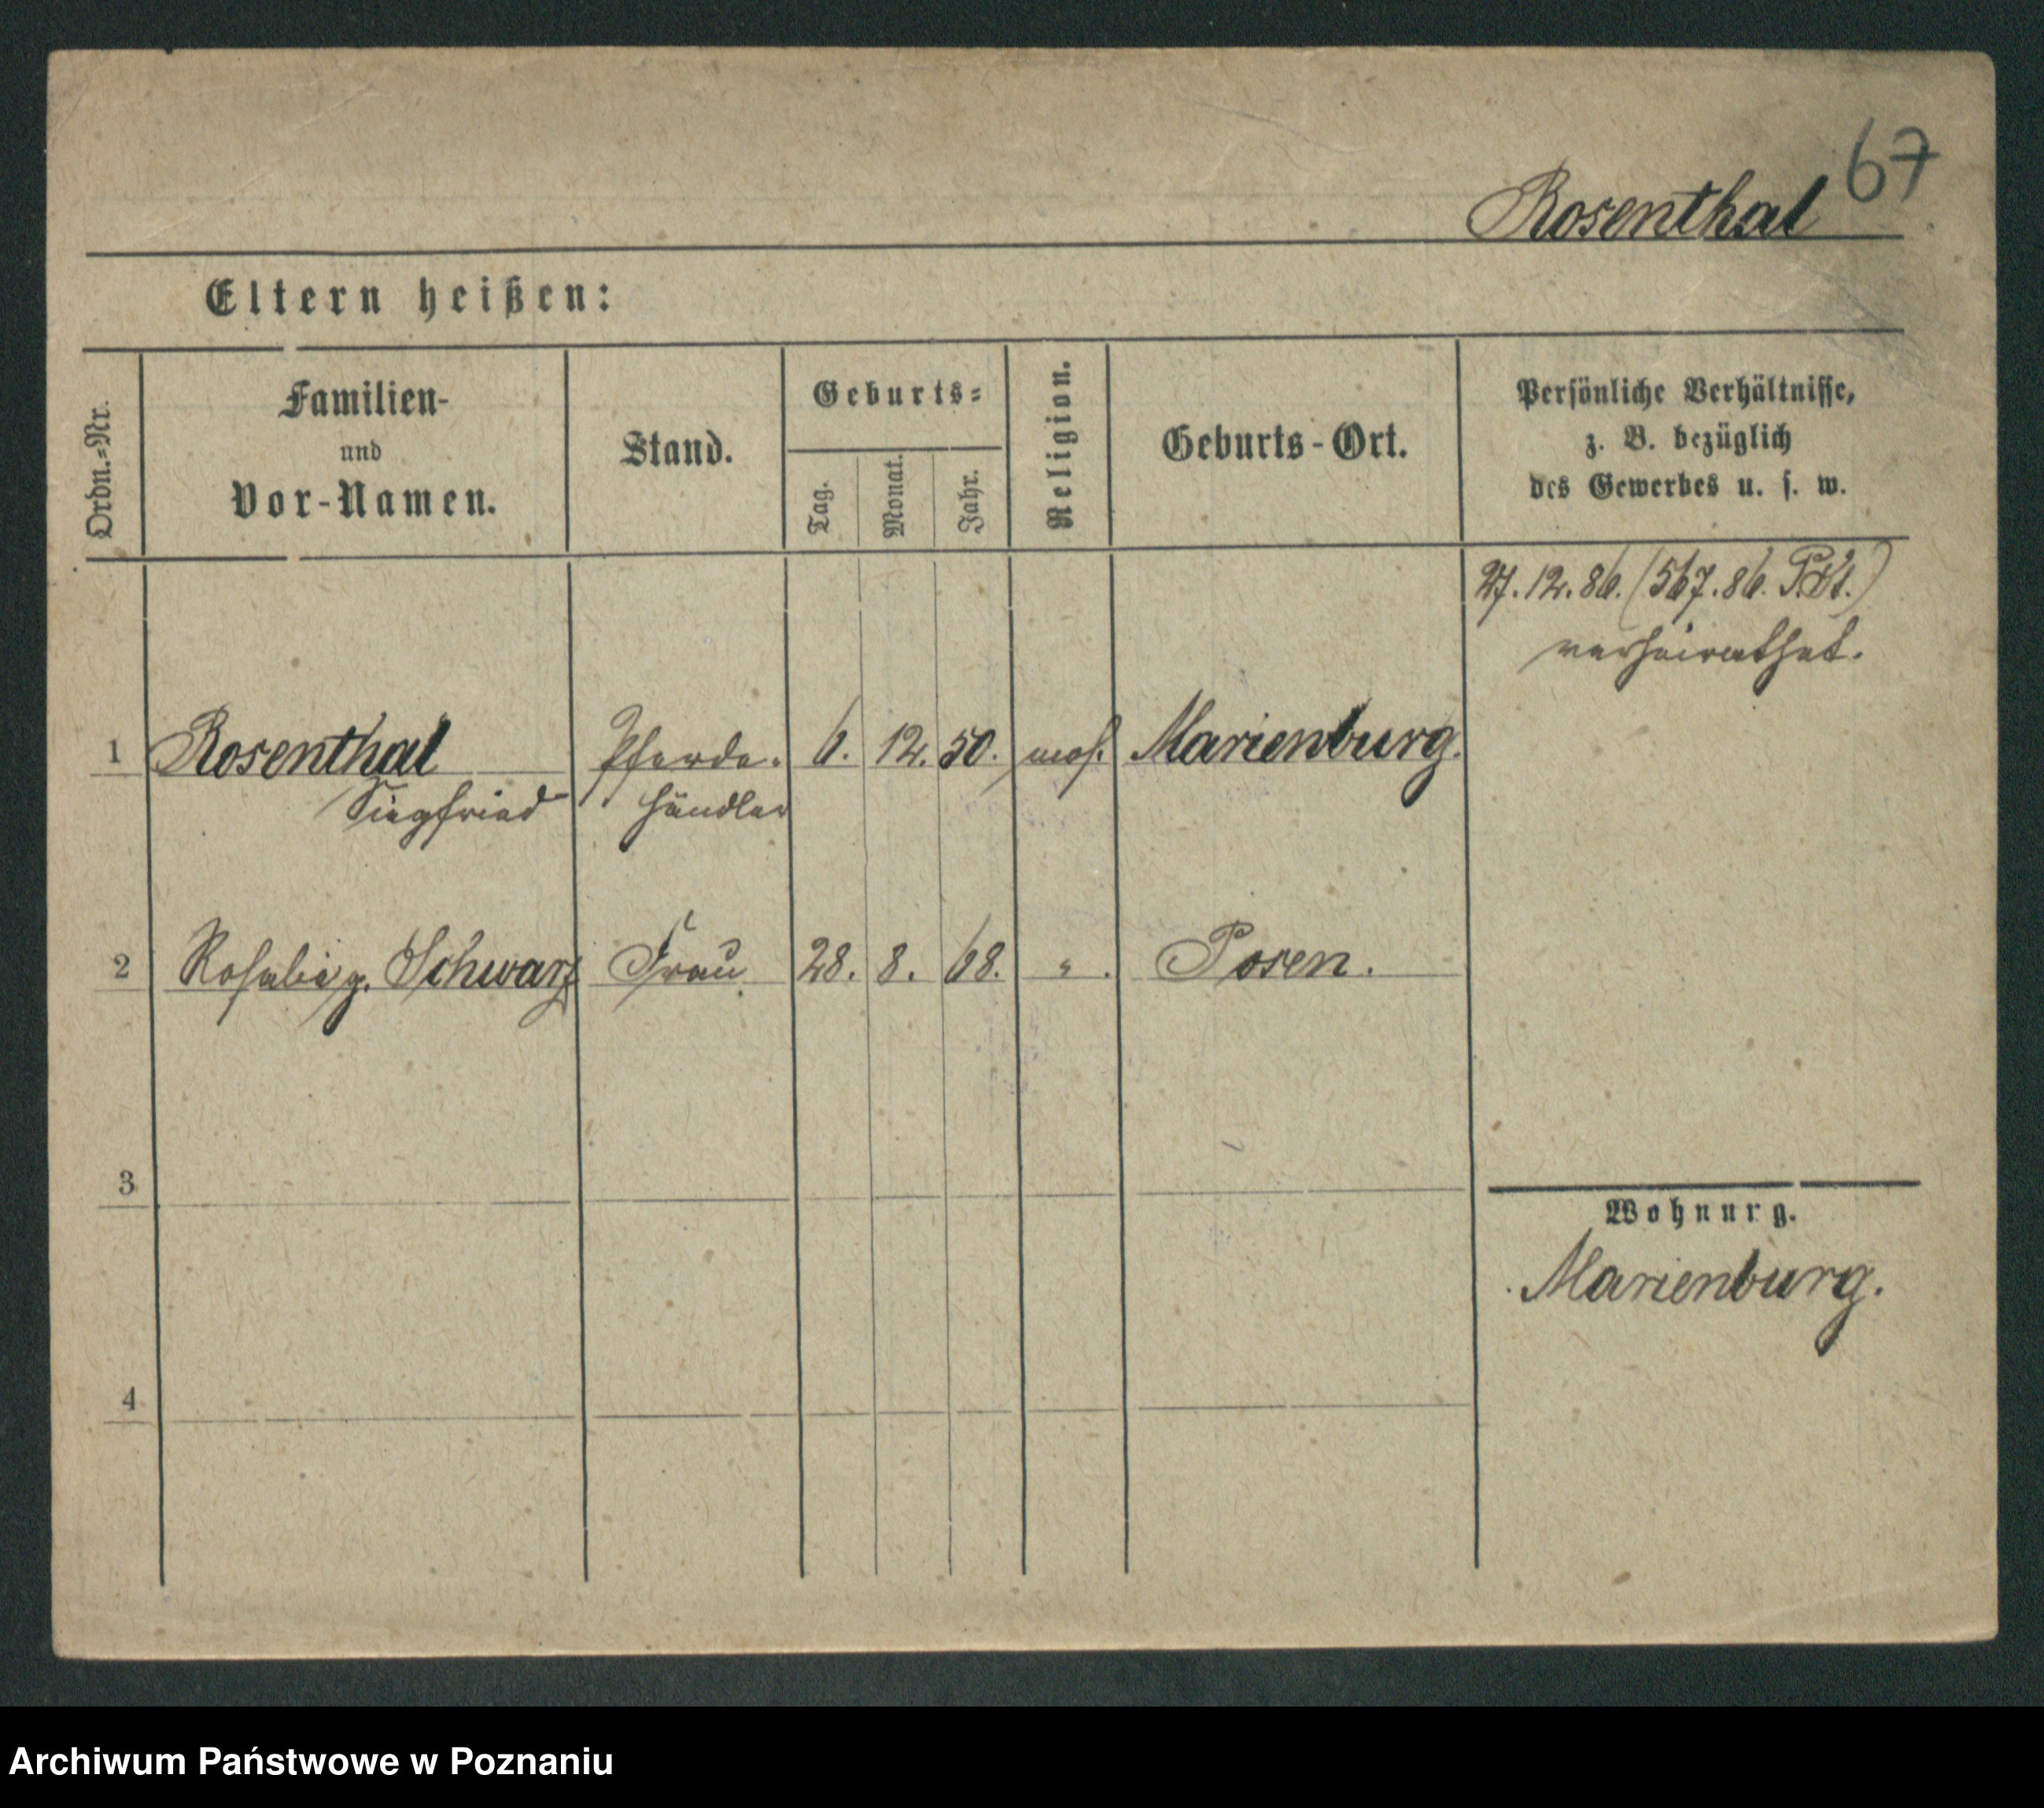 67
Rosenthal
Eltern heißen:
Ordn.-Nr.
Familien-
und
Vor-Namen.
Stand.
Geburts-
Tag.
Monat.
Jahr.
Religion.
Geburts-Ort.
Persönliche Verhältnisse,
z. B. bezüglich
des Gewerbes u. s. w.
27.12.86. (567.86. P.St.)
verheirathet.
1 Rosenthal Pferde- 6. 12. 50. mos. Marienburg.
Siegfried händler
2 Rosalie g. Schwarz Frau 28. 8. 68. " . Posen.
3
Wohnurg.
Marienburg.
4
Archiwum Państwowe w Poznaniu